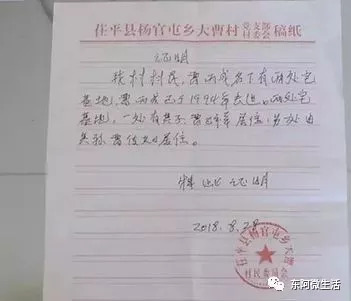 茌平县杨官屯乡大曹村党支部村委会稿纸
证明
我村村民,曹丙成名下有两处宅
基地,曹丙成已于1994年去世。两处宅
基地,一处有其子曹 居住,另一处由
其孙曹 居住。
特此证明
2018.8.28
茌平县杨官屯乡大曹村
村民委员会
东阿微生活